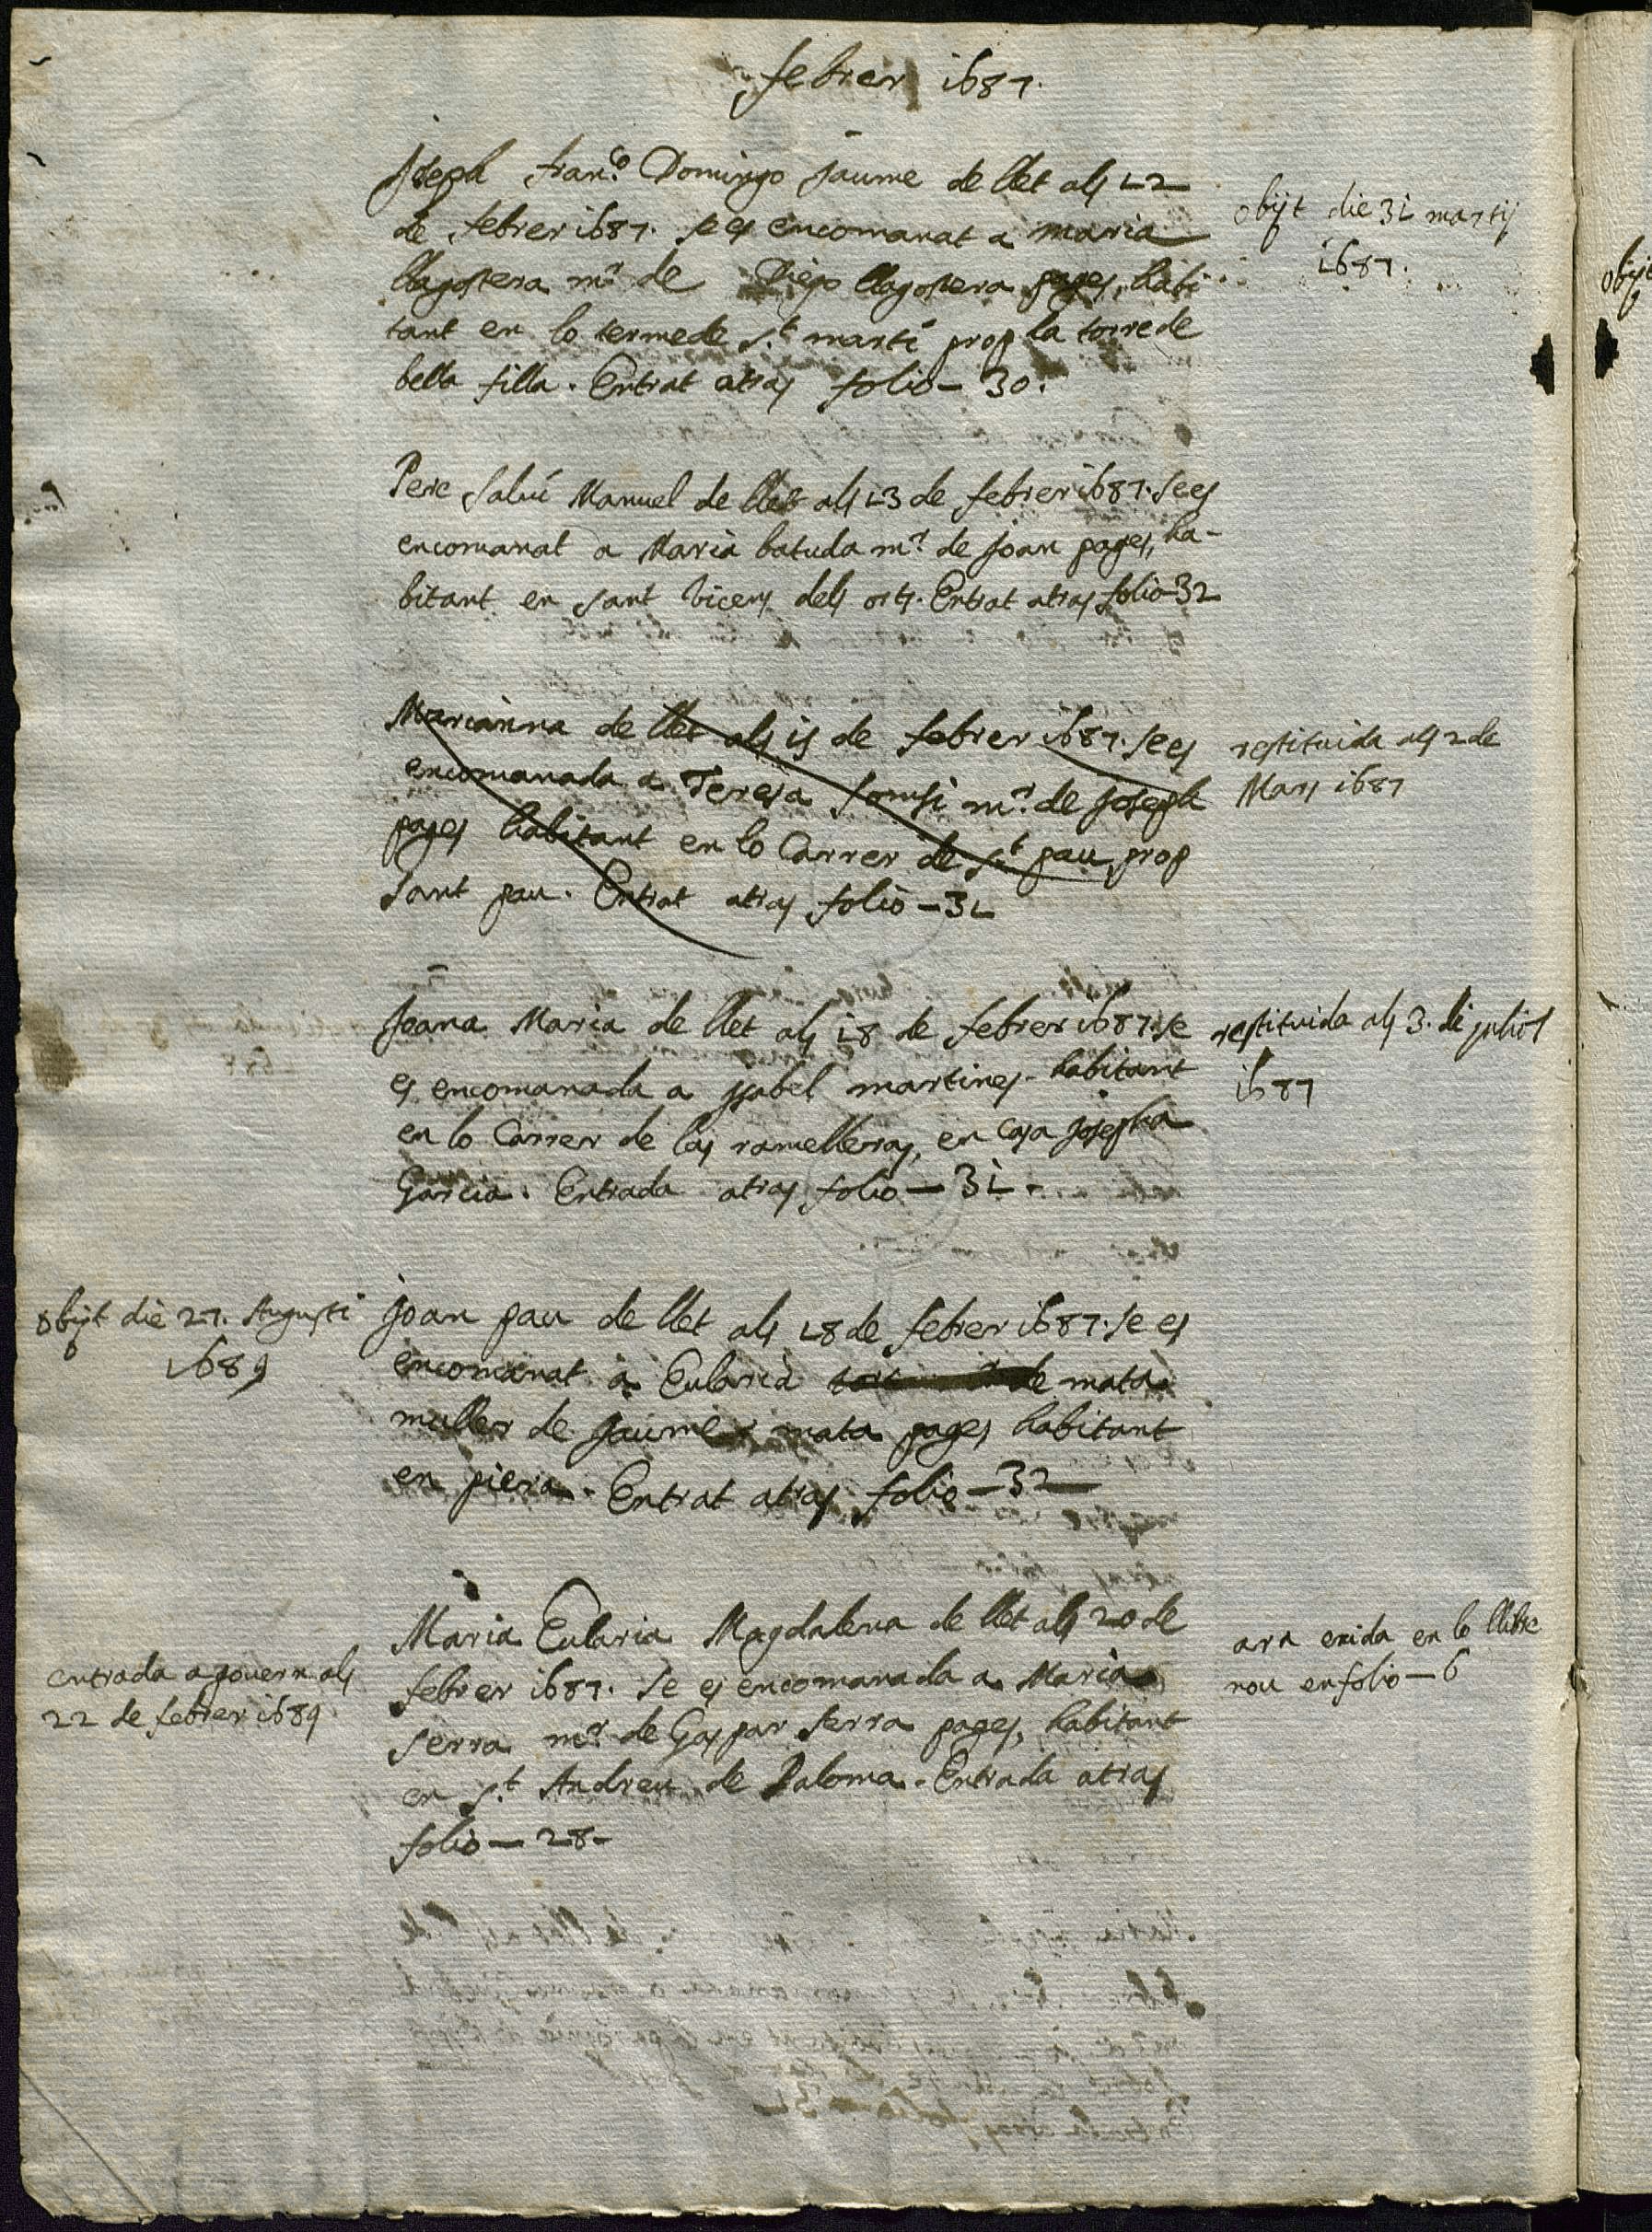 febrer 1687.
Joseph fran.co Domingo Jaume de llet als 12
de febrer 1687. se es encomanat a maria
llagostera m.r de Diego llagostera pages, habi
tant en lo terme de S.t marti prop la torre de
bella filla. Entrat atras folio - 30.
obijt die 31 martij
1687.
Pere Salui Manuel de llet als 13 de febrer 1687. se es
encomanat a Maria batuda m.r de Joan pages, ha-
bitant en sant Vicens dels orts. Entrat atras folio 32
Marianna de llet als 15 de febrer 1687. se es
encomanada a Teresa m.r de Joseph
pages habitant en lo Carrer de S.t pau prop
sant pau. Entrat atras folio - 31
restituida als 2 de
Mars 1687
Joana Maria de llet als 18 de febrer 1687. se
es encomanada a Isabel martines. habitant
en lo Carrer de las ramelleras, en casa Josepha
Garcia. Entrada atras folio - 31 -
restituida als 3. de juliol
1687
obijt die 27. Augusti
1689
Joan pau de llet als 18 de febrer 1687. se es
encomanat a Eularia de mata
muller de Jaume mata pages habitant
en piera. Entrat atras folio - 32 -
entrada a govern als
22 de febrer 1689
Maria Eularia Magdalena de llet als 20 de
febrer 1687. se es encomanada a Maria
serra m.r de Gaspar serra pages, habitant
en S.t Andreu de Paloma. Entrada atras
folio - 28 -
ara exida en lo llibre
nou en folio - 6
obijt